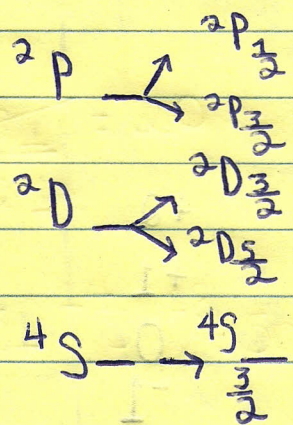 ²P → ²P 1/2
→ ²P 3/2
²D → ²D 3/2
→ ²D 5/2
⁴S → ⁴S 3/2